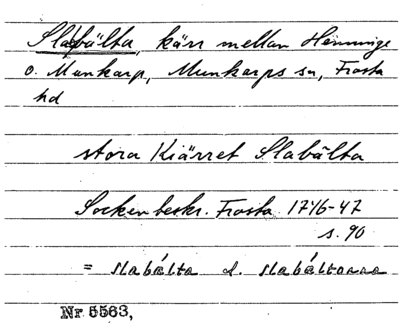 Slabälta, kärr mellan Henninge
o. Munkarp, Munkarps sn, Frosta
hd
stora Kiärret Slabälta
Sockenbeskr. Frosta 1746-47
s. 90
= slabálta l. slabáltorna
Nr 5563,